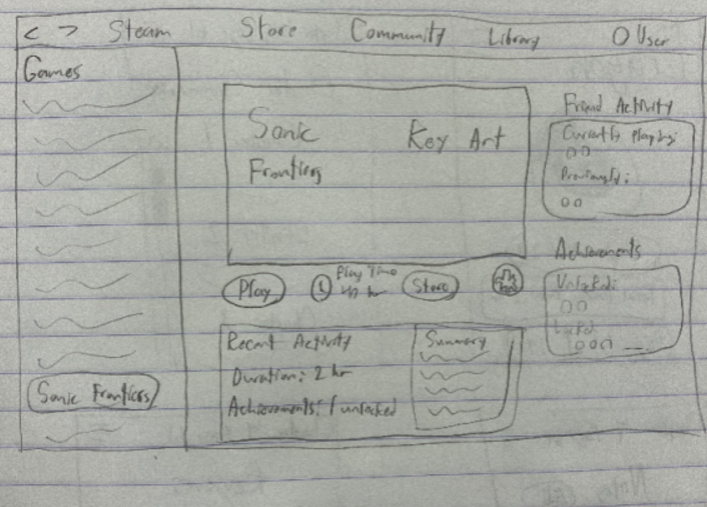 < > Steam Store Community Library User
Games
Sonic Frontiers
Sonic
Frontiers
Key Art
Play
Play Time
hr
Store
Recent Activity
Duration: 2 hr
Achievements: 1 unlocked
Summary
Friend Activity
Currently Playing:
Previously:
Achievements
Unlocked:
Locked